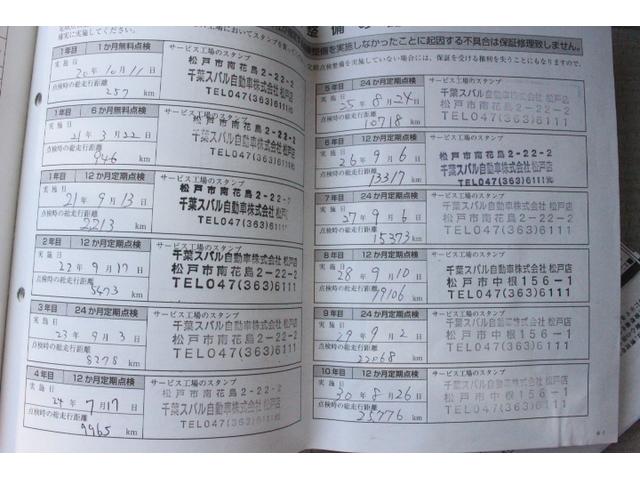 確実に実施してください。
1年目 1か月無料点検
サービス工場のスタンプ
実施日
20年10月11日
点検時の総走行距離
257 km
松戸市南花島2-22-2
千葉スバル自動車株式会社 松戸店
TEL047(363)6111
1年目 6か月無料点検
サービス工場のスタンプ
実施日
21年3月22日
点検時の総走行距離
946 km
松戸市南花島2-22-2
千葉スバル自動車株式会社 松戸店
TEL047(363)6111
1年目 12か月定期点検
サービス工場のスタンプ
実施日
21年9月13日
点検時の総走行距離
2213 km
松戸市南花島2-22-2
千葉スバル自動車株式会社 松戸店
TEL047(363)6111
2年目 12か月定期点検
サービス工場のスタンプ
実施日
22年9月17日
点検時の総走行距離
5473 km
千葉スバル自動車株式会社 松戸店
松戸市南花島2-22-2
TEL047(363)6111
3年目 24か月定期点検
サービス工場のスタンプ
実施日
23年9月3日
点検時の総走行距離
8378 km
千葉スバル自動車株式会社 松戸店
松戸市南花島2-22-2
TEL047(363)6111
4年目 12か月定期点検
サービス工場のスタンプ
実施日
24年7月17日
点検時の総走行距離
9965 km
松戸市南花島2-22-2
千葉スバル自動車株式会社 松戸店
TEL047(363)6111
整備を実施しなかったことに起因する不具合は保証修理致しません。
定期点検整備を実施していない場合には、保証を受ける権利を失うこともなりますので、
5年目 24か月定期点検
サービス工場のスタンプ
実施日
25年8月24日
点検時の総走行距離
10718 km
松戸市南花島2-22-2
千葉スバル自動車株式会社 松戸店
TEL047(363)6111
6年目 12か月定期点検
サービス工場のスタンプ
実施日
26年9月6日
点検時の総走行距離
13317 km
松戸市南花島2-22-2
千葉スバル自動車株式会社 松戸店
TEL047(363)6111
7年目 24か月定期点検
サービス工場のスタンプ
実施日
27年9月6日
点検時の総走行距離
15373 km
千葉スバル自動車株式会社 松戸店
松戸市南花島2-22-2
TEL047(363)6111
8年目 12か月定期点検
サービス工場のスタンプ
実施日
28年9月10日
点検時の総走行距離
19106 km
千葉スバル自動車株式会社 松戸店
松戸市中根156-1
TEL047(363)6111
9年目 24か月定期点検
サービス工場のスタンプ
実施日
29年9月2日
点検時の総走行距離
23068 km
千葉スバル自動車株式会社 松戸店
松戸市中根156-1
TEL047(363)6111
10年目 12か月定期点検
サービス工場のスタンプ
実施日
30年8月26日
点検時の総走行距離
25776 km
千葉スバル自動車株式会社 松戸店
松戸市中根156-1
TEL047(363)6111